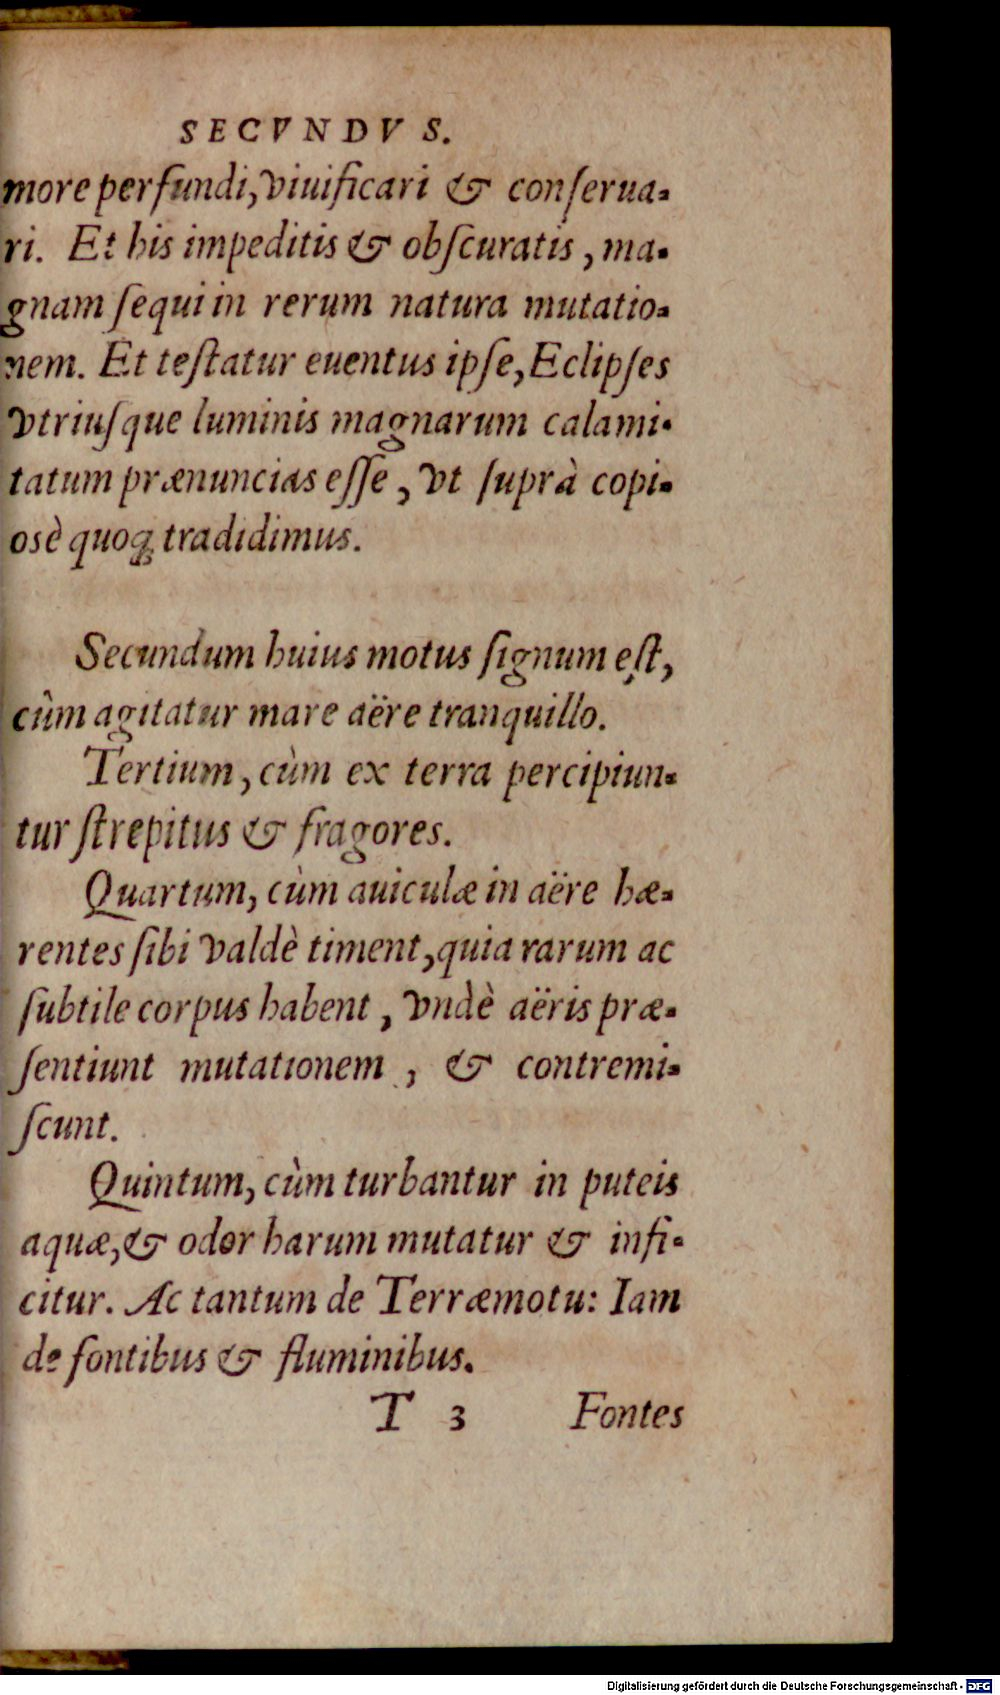 SECVNDVS.
more perfundi, viuificari & conſerua-
ri. Et his impeditis & obſcuratis, ma-
gnam ſequi in rerum natura mutatio-
nem. Et teſtatur euentus ipſe, Eclipſes
vtriuſque luminis magnarum calami-
tatum prænuncias eſſe, vt ſuprà copi-
osè quoq; tradidimus.
Secundum huius motus ſignum eſt,
cùm agitatur mare aëre tranquillo.
Tertium, cùm ex terra percipiun-
tur ſtrepitus & fragores.
Quartum, cùm auiculæ in aëre hæ-
rentes ſibi valdè timent, quia rarum ac
ſubtile corpus habent, vndè aëris præ-
ſentiunt mutationem, & contremi-
ſcunt.
Quintum, cùm turbantur in puteis
aquæ, & odor harum mutatur & infi-
citur. Ac tantum de Terræmotu: Iam
de fontibus & fluminibus.
T 3 Fontes
Digitalisierung gefördert durch die Deutsche Forschungsgemeinschaft - DFG